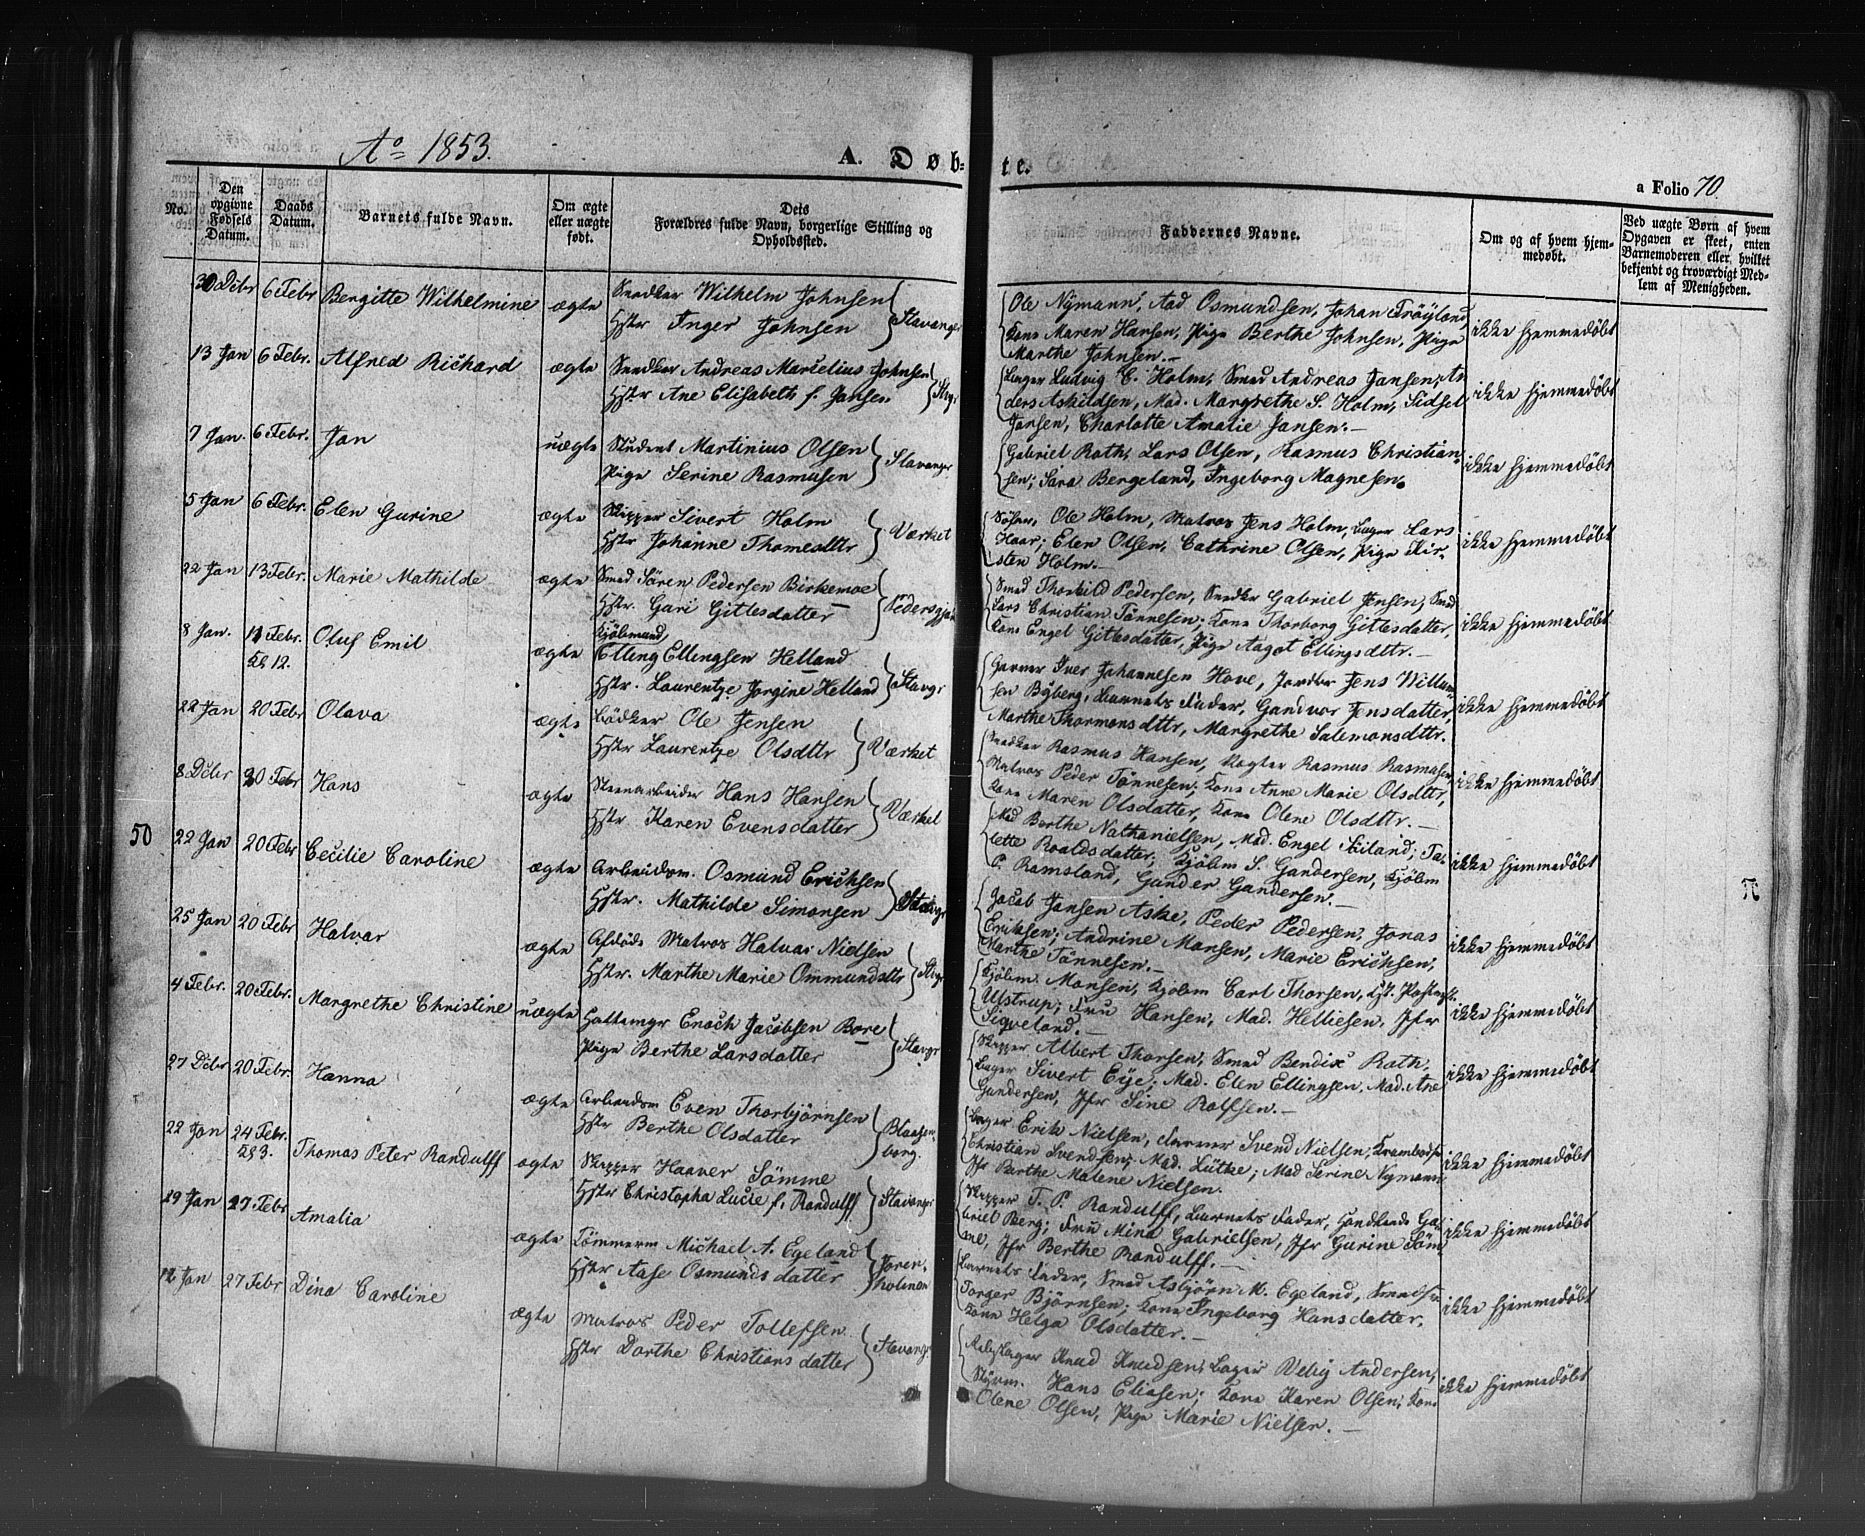 Ao 1853.
A. Døb-
te.
a Folio 70.
No.
Den opgivne Fødsels Datum.
Daabs Datum.
Barnets fulde Navn.
Om ægte eller uægte født.
Dets Forældres fulde Navn, borgerlige Stilling og Opholdssted.
Faddernes Navne.
Om og af hvem hjemmedøbt.
Ved uægte Børn af hvem Opgaven er skeet, enten Barnemoderen eller hvilket bekjendt og troværdigt Medlem af Menigheden.
30 Debr 6 Febr Bergitte Wilhelmine ægte Snedker Wilhelm Johnsen
Hstr Inger Johnsen } Stavanger
Ole Nÿmann, Aad Osmundsen, Johan Fröÿland,
Kone Maren Hansen, Pige Berthe Johnsen, Pige
Marthe Johnsen.—
ikke hjemmedöbt
13 Jan 6 Febr. Alfred Richard ægte Snedker Andreas Marselius Johnsen
Hstr Ane Elisabeth f. Jansen } Stvgr
Lager Ludvig C. Holm, Smed Andreas Jansen, An
ders Askildsen, Mad. Margrethe S. Holm, Sidsel
Jansen, Charlotte Amalie Jansen.—
ikke hjemmedöbt
7 Jan. 6 Febr. Jan uægte Student Martinius Olsen
Pige Serine Rasmusen } Stavanger
Gabriel Rath, Lars Olsen, Rasmus Christian-
sen; Sara Bergeland, Ingeborg Magnesen.
ikke hjemmedöbt
5 Jan 6 Febr. Elen Gurine ægte Skipper Sivert Holm
Hstr Johanne Thomesdttr } Værket
Ole Holm, Matros Jens Holm, Lager Lars
Haar; Elen Olsen, Cathrine Olsen, Pige Kir-
sten Holm.—
ikke hjemmedöbt
22 Jan 13 Febr. Marie Mathilde ægte Smed Sören Pedersen Birkemoe
Hstr. Gari Gitlesdatter } Pedersgjær
Smed Thorkild Pedersen, Snedker Gabriel Jensen, Smed
Lars Christian Tönnesen; Kone Thorborg Gitlesdatter,
Kone Engel Gitlesdatter, Pige Aagot Ellingsdttr.—
ikke hjemmedöbt
8 Jan. 11 Febr. Oluf Emil ægte Kjöbmand
Elling Ellingsen Helland
Hstr. Laurentze Jorgine Helland } Stavgr
Garver Iver Johannesen Hove, Jens Willum-
sen Bÿberg, Barnets Fader, Gandvor Jensdatter,
Marthe Thormonsdttr, Margrethe Salemonsdttr.
ikke hjemmedöbt
22 Jan 20 Febr Olava ægte Bödker Ole Jensen
Hstr Laurentze Olsdttr } Værket
Snedker Rasmus Hansen, Rasmus Rasmusen,
Matros Peder Tönnesen; Kone Anne Marie Olsdttr,
Kone Maren Olsdatter, Kone Olene Olsdttr.—
ikke hjemmedöbt
8 Debr 20 Febr Hans ægte Steenarbeider Hans Hansen
Hstr. Karen Evensdatter } Værket
Mad Berthe Nathanielsen, Mad. Engel Höiland; Ta-
lette Roaldsdatter; Kjöbm S. Gandersen, Kjöbm
P. Ramsland, Gunder Gandersen.—
ikke hjemmedöbt
50
22 Jan 20 Febr Cecilie Caroline ægte Arbeidsm. Osmund Erichsen
Hstr. Mathilde Simonsen } Stavgr
Jacob Jansen Aske, Peder Pedersen, Jonas
Eriksen; Andrine Monsen, Marie Erichsen,
Marthe Tönnesen.—
ikke hjemmedöbt
25 Jan 20 Febr Halvar ægte Afdöde Matros Halvar Nielsen
Hstr. Marthe Marie Ommundsdttr } Stvgr
Kjöbm. Monsen, Kjöbm Carl Thorsen,
Ulstrup; Fru Hansen, Mad. Helliesen, Jfr
Sigveland.—
ikke hjemmedöbt
4 Febr. 20 Febr. Margrethe Christine uægte Hattemgr Enoch Jacobsen Bore
Pige Berthe Larsdatter } Stavgr
Skipper Albert Thorsen, Smed Bendix Rath,
Lager Sivert Eÿe; Mad. Elen Ellingsen, Mad. Ane
Gundersen, Jfr Sine Rolfsen.—
ikke hjemmedöbt
27 Debr 20 Febr. Hanna ægte Arbeidsm Even Thorbjörnsen
Hstr Berthe Olsdatter } Blaasen-
borg.
Lager Erik Nielsen, Farver Svend Nielsen,
Christian Svendsen; Mad. Lütke; Mad Serine Nymann
Jfr Berthe Malene Nielsen.
ikke hjemmedöbt
22 Jan 24 Febr. Thomas Peter Randulff ægte Skipper Haaver Sömme
Hstr Christopha Lucie f. Randulff } Stavangr
Skipper T. P. Randulff, Barnets Fader, Handlende Ga-
briel Berg; Fru Mina Gabrielsen, Jfr Gurine Söm
me, Jfr Berthe Randulff.—
ikke hjemmedöbt
29 Jan 27 Febr Amalia ægte Tömmerm Michael A. Egeland
Hstr Aase Osmundsdatter } Joren-
holmen
Barnets Fader, Smed Asbjörn M. Egeland,
Torger Björnsen; Kone Ingeborg Hansdatter,
Kone Helga Olsdatter.—
ikke hjemmedöbt
12 Jan 27 Febr Dina Caroline ægte Matros Peder Tollefsen
Hstr Dorthe Christiansdatter } Stavangr
Rebslager Knud Knudsen, Lager Andersen,
Styrm. Hans Eliasen; Kone Karen Olsen, Kone
Olene Olsen, Pige Marie Nielsen.—
ikke hjemmedöbt